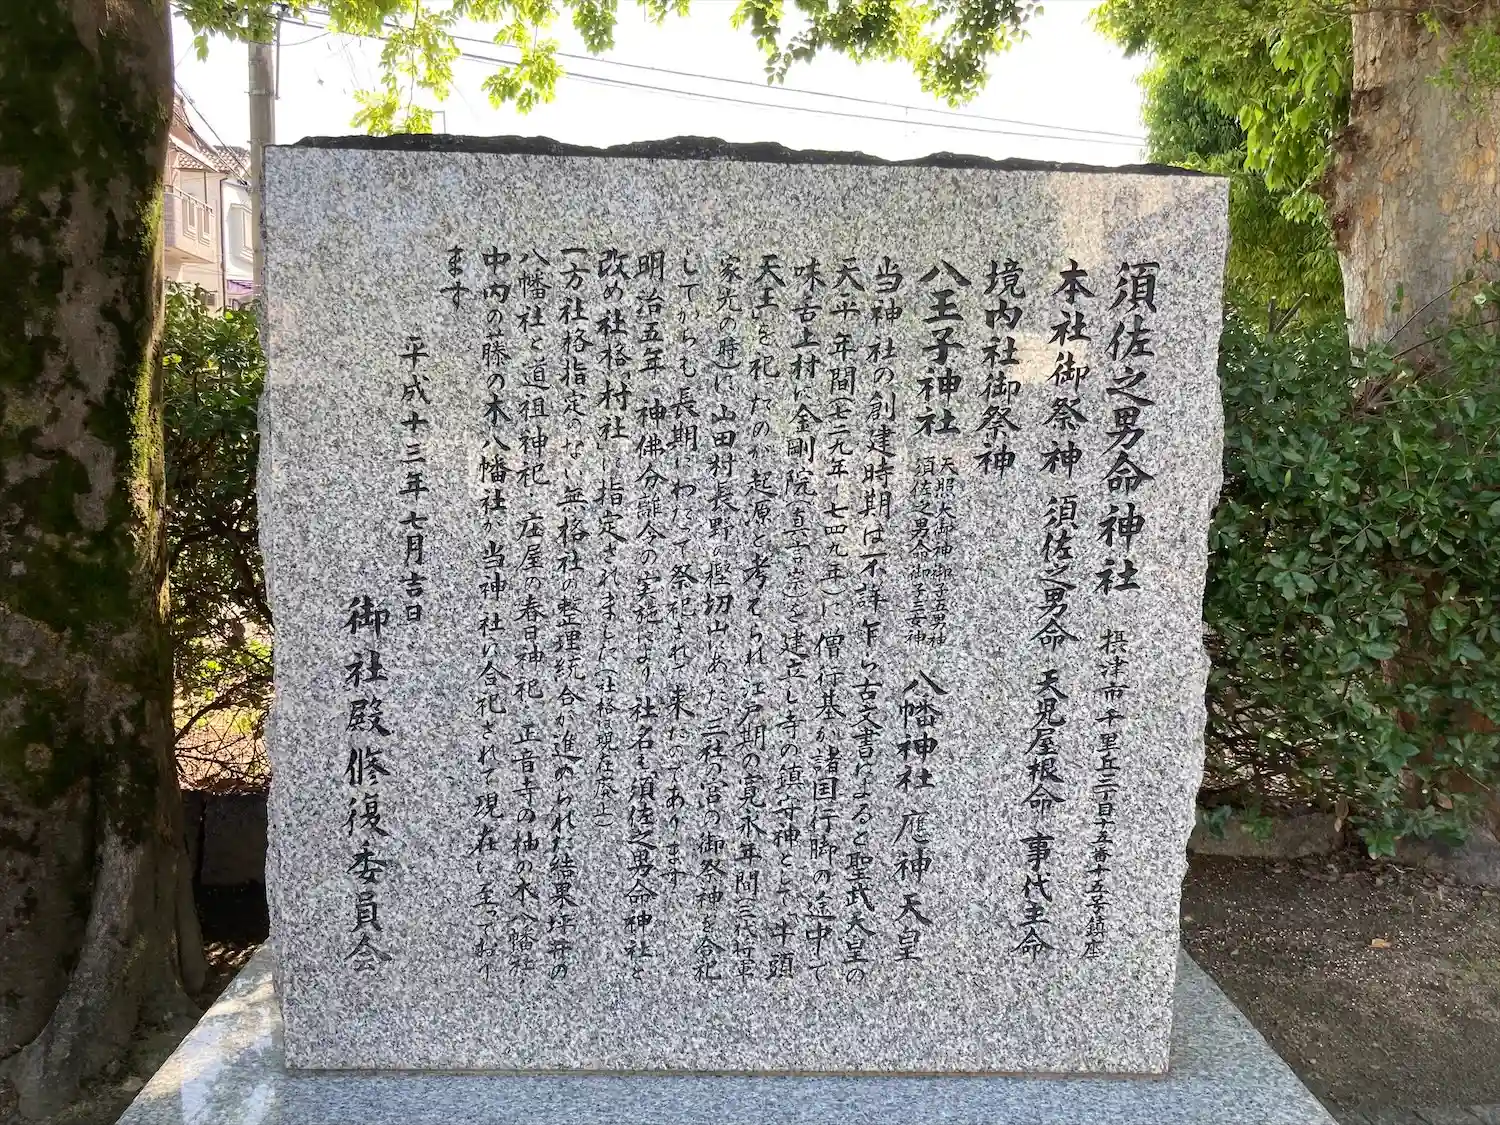 須佐之男命神社 摂津市千里丘三丁目十五番十五号鎮座
本社御祭神 須佐之男命 天児屋根命 事代主命
境内社御祭神
八王子神社 天照大御神御子五男神 須佐之男命御子三女神 八幡神社 應神天皇
当神社の創建時期は不詳乍ら古文書によると聖武天皇の
天平年間(七二九年-七四九年)に僧行基が諸国行脚の途中で
味舌上村に金剛院(真言宗)を建立し寺の鎮守神として牛頭
天王を祀ったのが起源と考えられ江戸期の寛永年間(三代将軍
家光の時)に山田村長野の樫切山にあった三社の宮の御祭神を合祀
してからも長期にわたって祭祀されて来たのであります
明治五年 神佛分離令の実施により 社名も須佐之男命神社と
改め社格村社に指定されました(社格は現在廃止)
一方社格指定のない無格社の整理統合が進められた結果坪井の
八幡社と道祖神祀・庄屋の春日神祀 正音寺の柚の木八幡社・
中内の藤の木八幡社が当神社に合祀されて現在に至っており
ます
平成十三年七月吉日
御社殿修復委員会